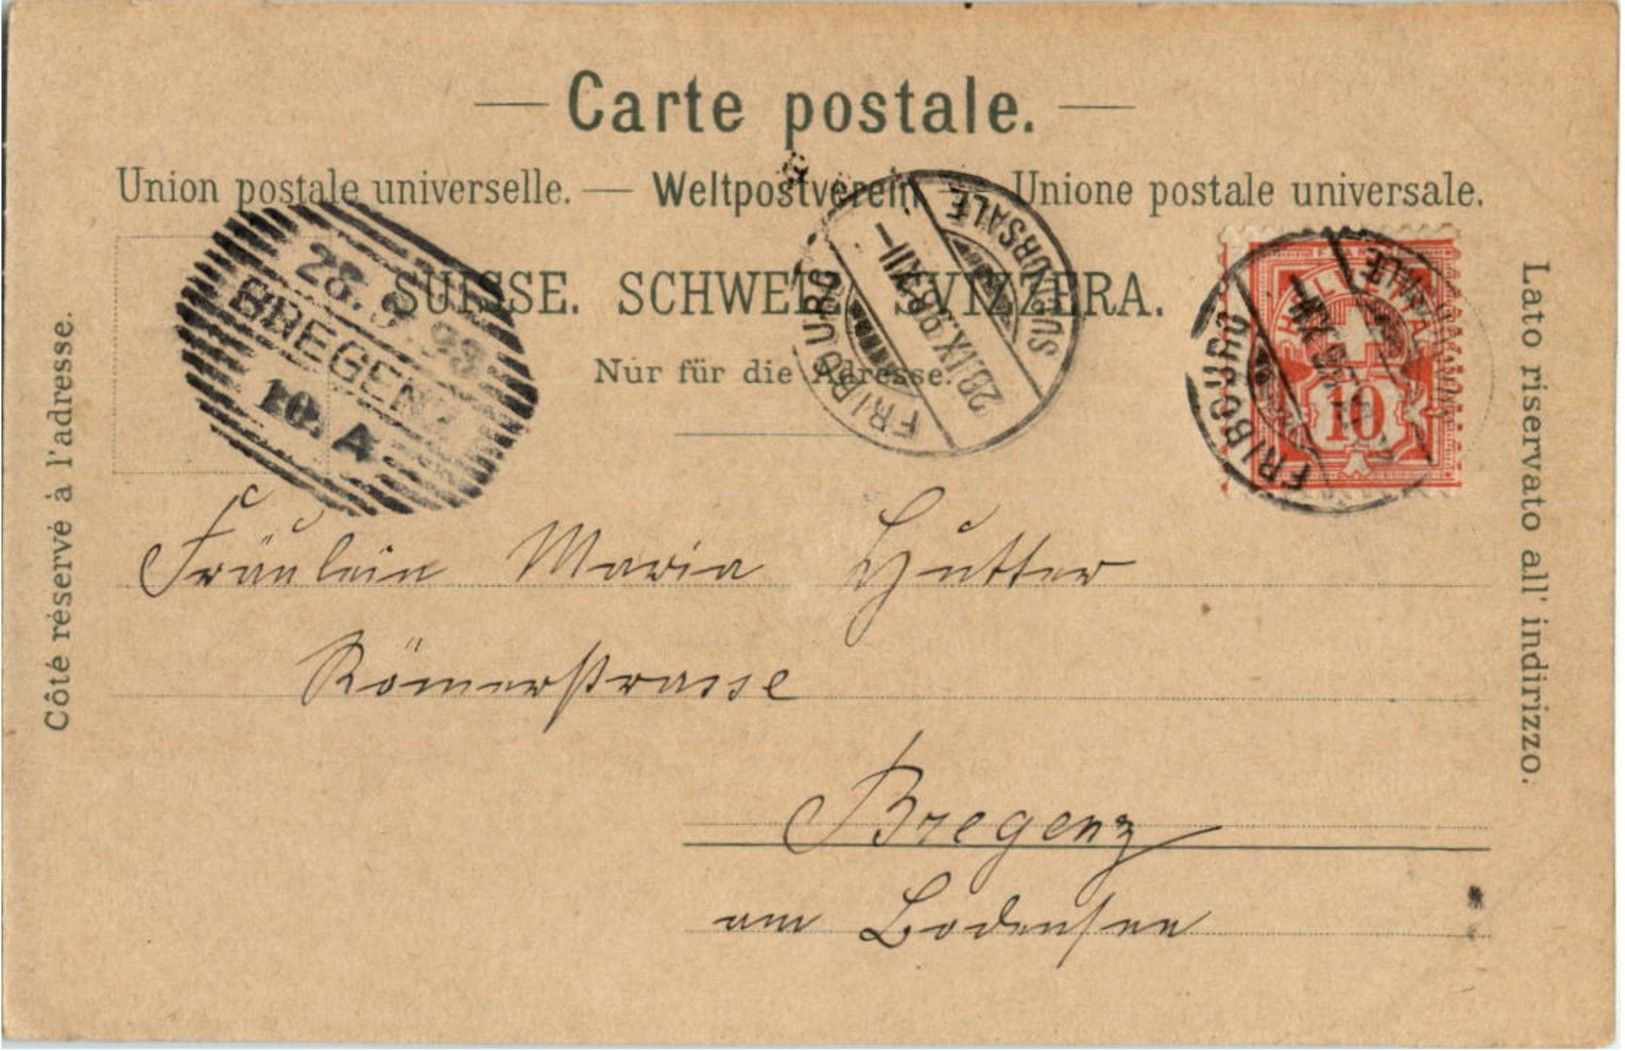 Carte postale.
Union postale universelle. — Weltpostverein — Unione postale universale.
SUISSE. SCHWEIZ. SVIZZERA.
Nur für die Adresse.
Côté réservé à l'adresse.
Lato riservato all' indirizzo.
BREGENZ
10. A
FRIBOURG
28.IX.98.XII–
SUCCURSALE
HELVETIA
10
FRIBOURG
Fräulein Maria Hutter
Römerstrasse
Bregenz
am Bodensee